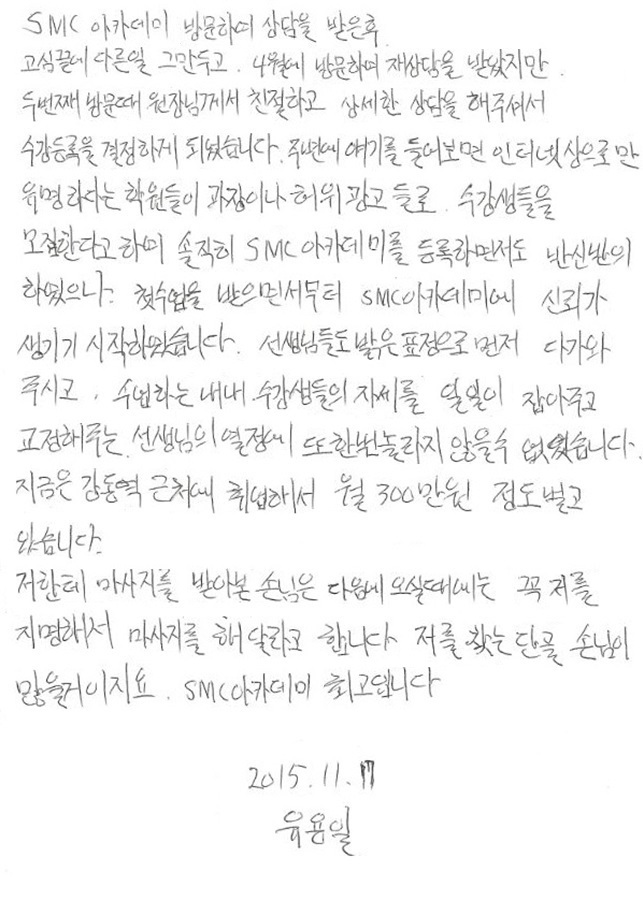 SMC 아카데미 방문하여 상담을 받은후
고심끝에 다른일 그만두고. 4월에 방문하여 재상담을 받았지만.
두번째 방문때 원장님께서 친절하고 상세한 상담을 해주셔서
수강등록을 결정하게 되었습니다. 주변에 얘기를 들어보면 인터넷상으로만
유명하다는 학원들이 과장이나 허위 광고 들로. 수강생들을
모집한다고하여 솔직히 SMC아카데미를 등록하면서도 반신반의
하였으나. 첫수업을 받으면서부터 SMC아카데미에 신뢰가
생기기 시작하였습니다. 선생님들도 밝은표정으로 먼저 다가와
주시고. 수업하는 내내 수강생들의 자세를 일일이 잡아주고
교정해주는 선생님의 열정에 또한번놀라지 않을수 없었습니다.
지금은 강동역 근처에 취업해서 월 300만원 정도벌고
있습니다.
저한테 마사지를 받아본 손님은 다음에 오실때에는 꼭 저를
지명해서 마사지를 해 달라고 합니다 저를 찾는 단골 손님이
많을거이지요. SMC아카데미 최고입니다
2015.11.17
유용일